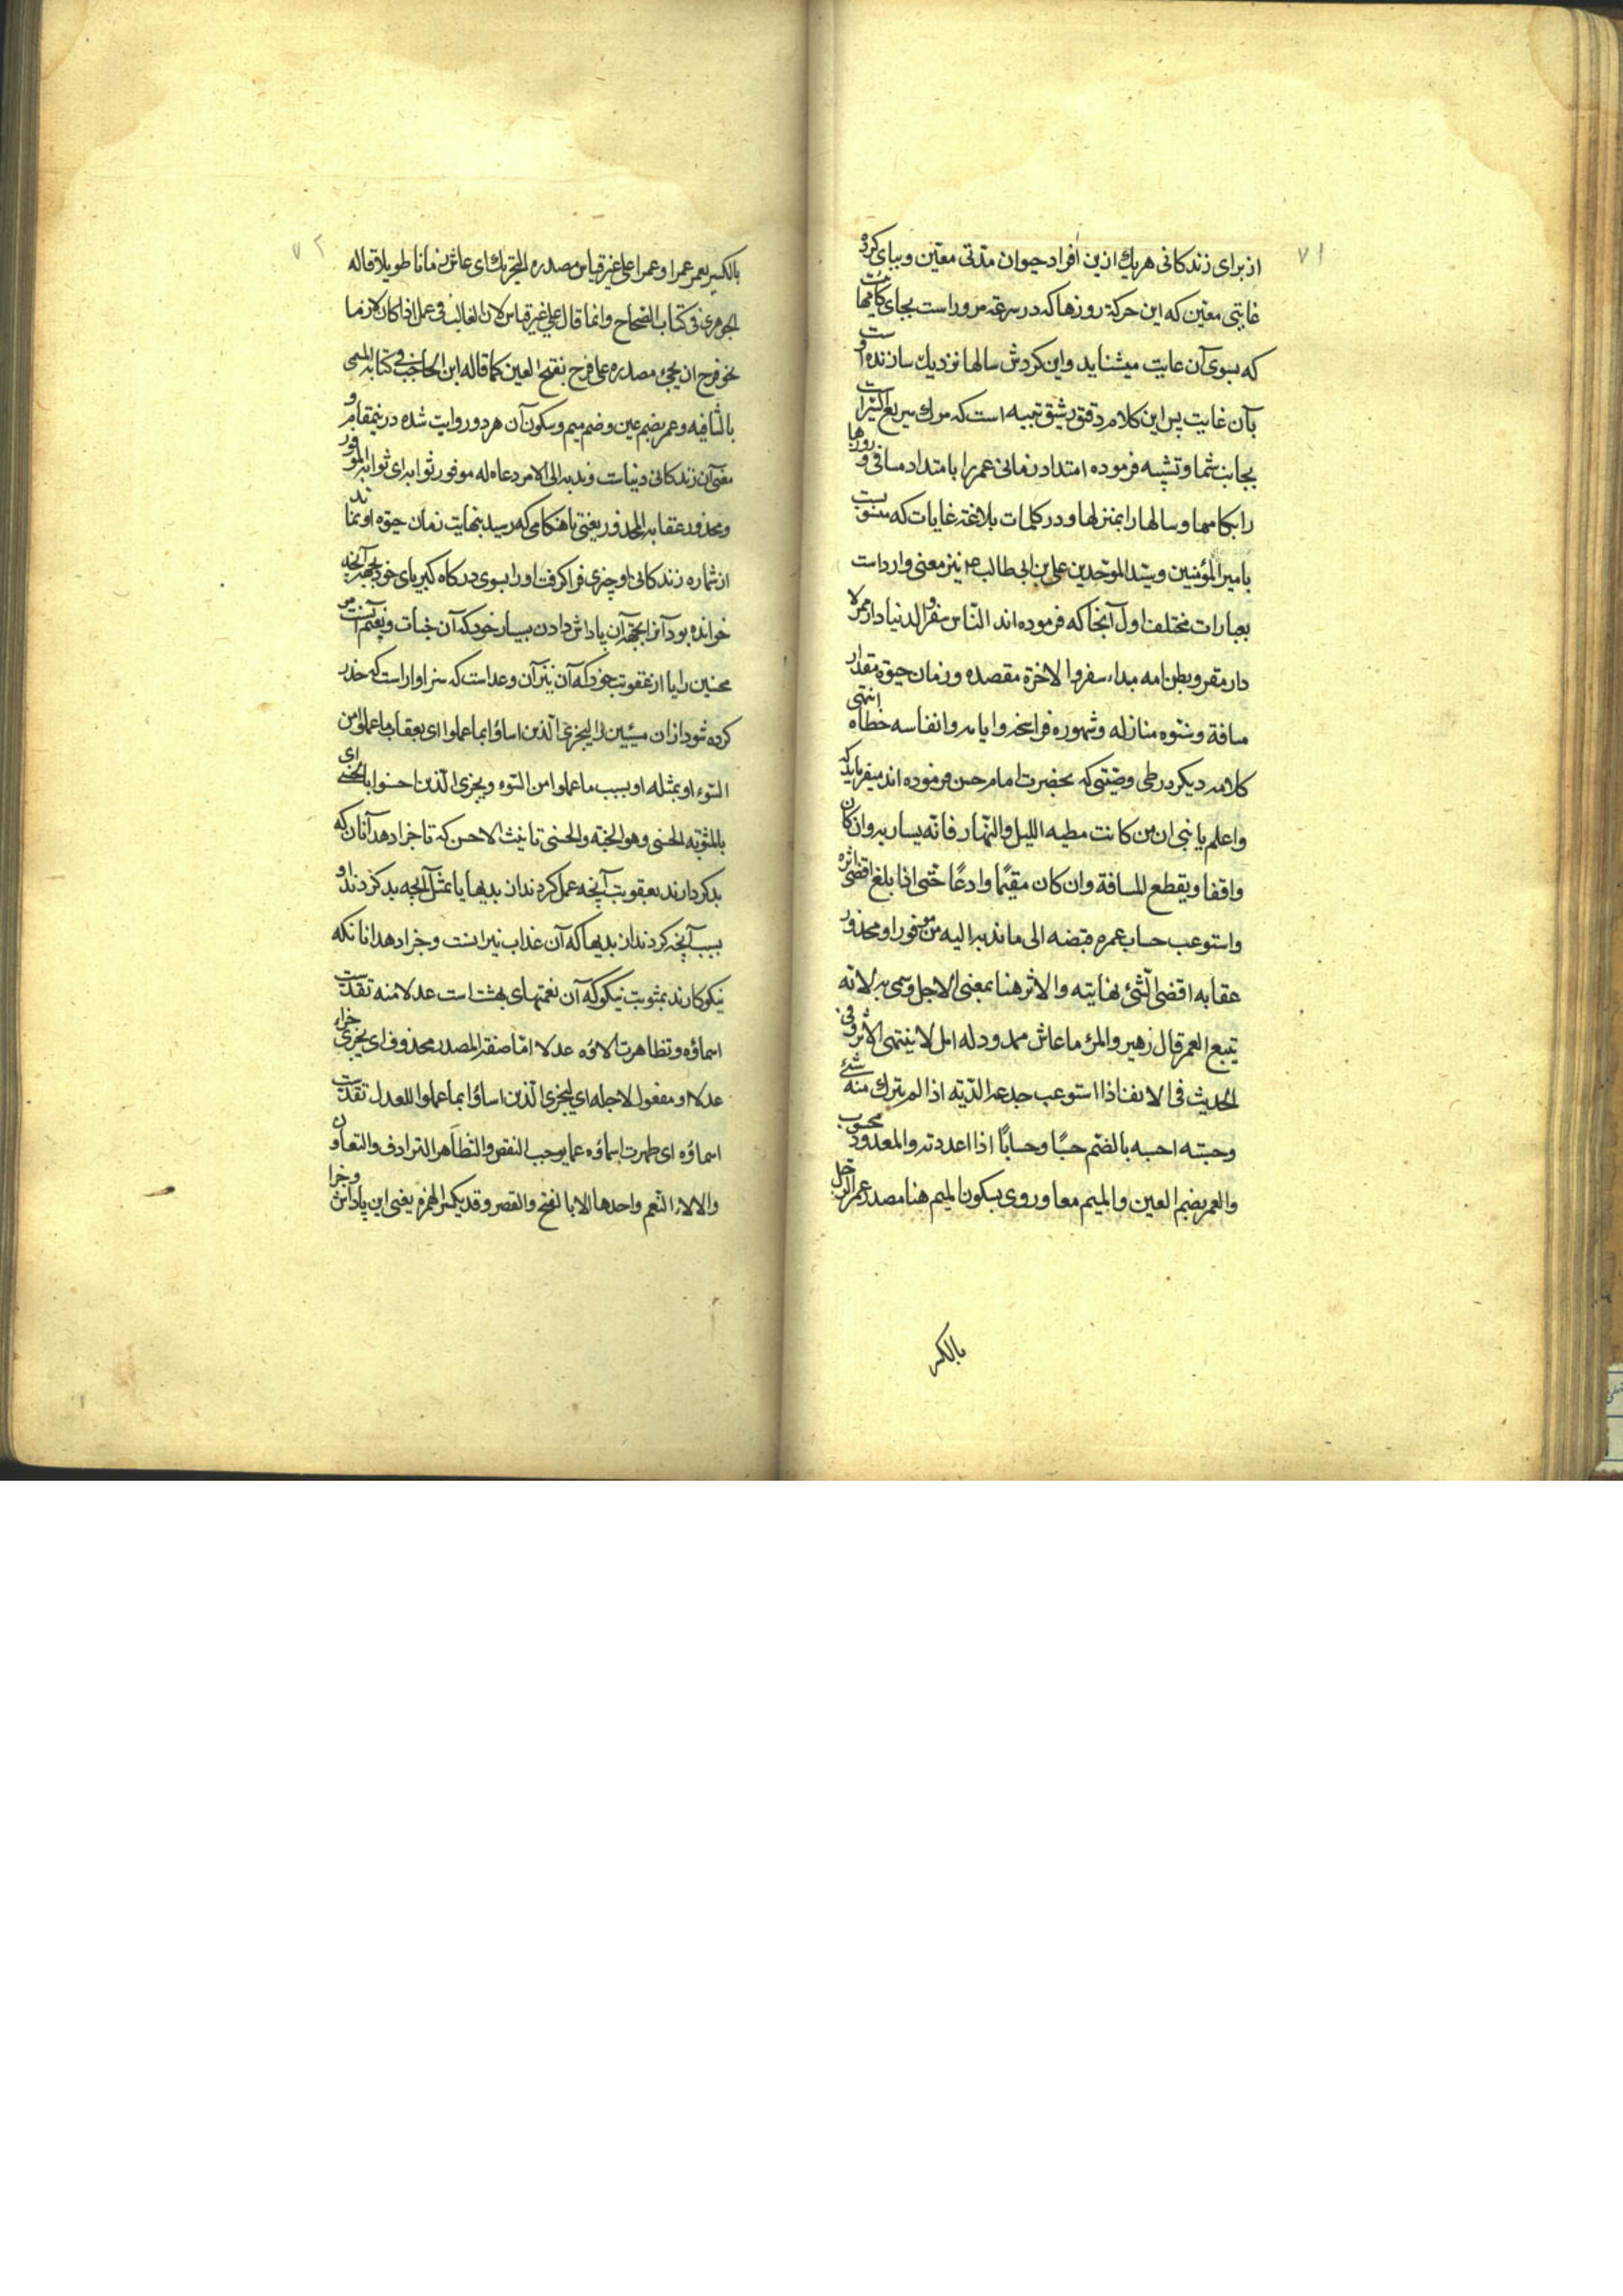 ۷۱
از برای زندکانی هر یك ازین افراد حیوان مدتی معین و بپای کرده
غایتی معین که این حرکة روزها که در سرعة مرور است بجای کامهاست
که بسوی آن غایت میشتابد و این کردش سالها نزدیك سازنده اوست
بآن غایت پس این کلام دقیق رشیق تنبیه است که مرك سریع السیر است
بجانب شما و تشبیه فرموده امتداد زمانی عمر را بامتداد مسافی و روزها
را بکامها و سالها را بمنزلها و در کلمات بلاغة غایات که منسوبست
بامیر المؤمنین و سید الموحدین علی بن ابی طالب نیز معنی وارد است
بعبارات مختلف اول آنجا که فرموده اند الناس سفر و الدنیا دار ممر لا
دار مقر و بطن امه مبداء سفر و الاخرة مقصده و زمان حیوة مقدار
مسافة و سنوه منازله و شهوره فراسخه و ایامه و انفاسه خطاه انتهی
کلامه دیکر در طی وصیتی که بحضرت امام حسن فرموده اند میفرماید که
واعلم یا بنی ان من کانت مطیه اللیل و النهار فانه یسار به و ان کان
واقفا و یقطع المسافة و ان کان مقیمًا وادعًا حتی اذا بلغ اقصی اثره
و استوعب حساب عمره قبضه الی ما ندبه الیه من موفور او محذور
عقابه اقصی الشئ نهایته و الاثر هنا بمعنی الاجل و سمی به لانه
یتبع العمر قال زهیر و المرء ما عاش ممدود له امل لا ینتهی الاثر و فی
الحدیث فی الانف اذا استوعب جدعه الدیته اذا لم یترك منه شئ
و حسبته احسبه بالضم حسبًا و حسابًا اذا اعددته و المعدود محسوب
و العمر بضم العین و المیم معا و روی بسکون المیم هنا مصدر عمر الرجل
بالکسر
۷۲
بالکسر یعمر عمرا و عمرا علی غیر قیاس مصدره التحریك ای عاش زمانا طویلا قاله
الجوهری فی کتاب الصحاح و انما قال علی غیر قیاس لان الغالب فی عمل اذا کان لازما
نحو فرح ان یجئ مصدره علی فرح بفتح العین کما قاله ابن الحاجب فی کتابه المسمی
بالشافیه و عمر بضم عین و ضم میم و سکون آن هر دو روایت شده درینمقام و
معنی آن زندکانی دنیاست و ندبه الی الامر دعاه له موفور ثوابه ای ثوابه الموفور
و محذور عقابه المحذور یعنی تا هنکامی که رسید بنهایت زمان حیوة او نماند
از شماره زندکانی او چیزی فرا کرفت او را بسوی درکاه کبریای خود بجهة آنچه
خوانده بود آنرا بجهة آن پاداش دادن بسیار خود که آن جنات و نعیم است مر
محسنین را یا از عقوبت خود که آن نیرانست و عداست که سزاوار است که حذر
کرده شود از ان مسیئین را لیجزی الذین اساؤا بما عملوا ای بعقاب ما عملوا من
السوء او بمثله او بسبب ما عملوا من السوء و یجزی الذین احسنوا بالحسنی ای
بالمثوبة الحسنی و هو الجنة و الحسنی تانیث الاحسن که تا جزا دهد آنان که
بدکردارند بعقوبت آنچه عمل کردند از بدیها یا بمثل آنچه بد کردند او
بسبب آنچه کردند از بدیها که آن عذاب نیرانست و جزا دهد انانکه
نیکوکارند بمثوبت نیکو که آن نعمتهای بهشت است عدلا منه تقدست
اسماؤه و تظاهرت الاؤه عدلا اما صفة المصدر محذوف ای یجزی جزاء
عدلا او مفعول لاجله ای لیجزی الذین اساؤا بما عملوا للعدل تقدست
اسماؤه ای طهرت اسماؤه عما یوجب النقص و التظاهر الترادف و التعاون
و الالاء النعم واحدها الا بالفتح و القصر و قد یکسر الهمزه یعنی این پاداش و جزا